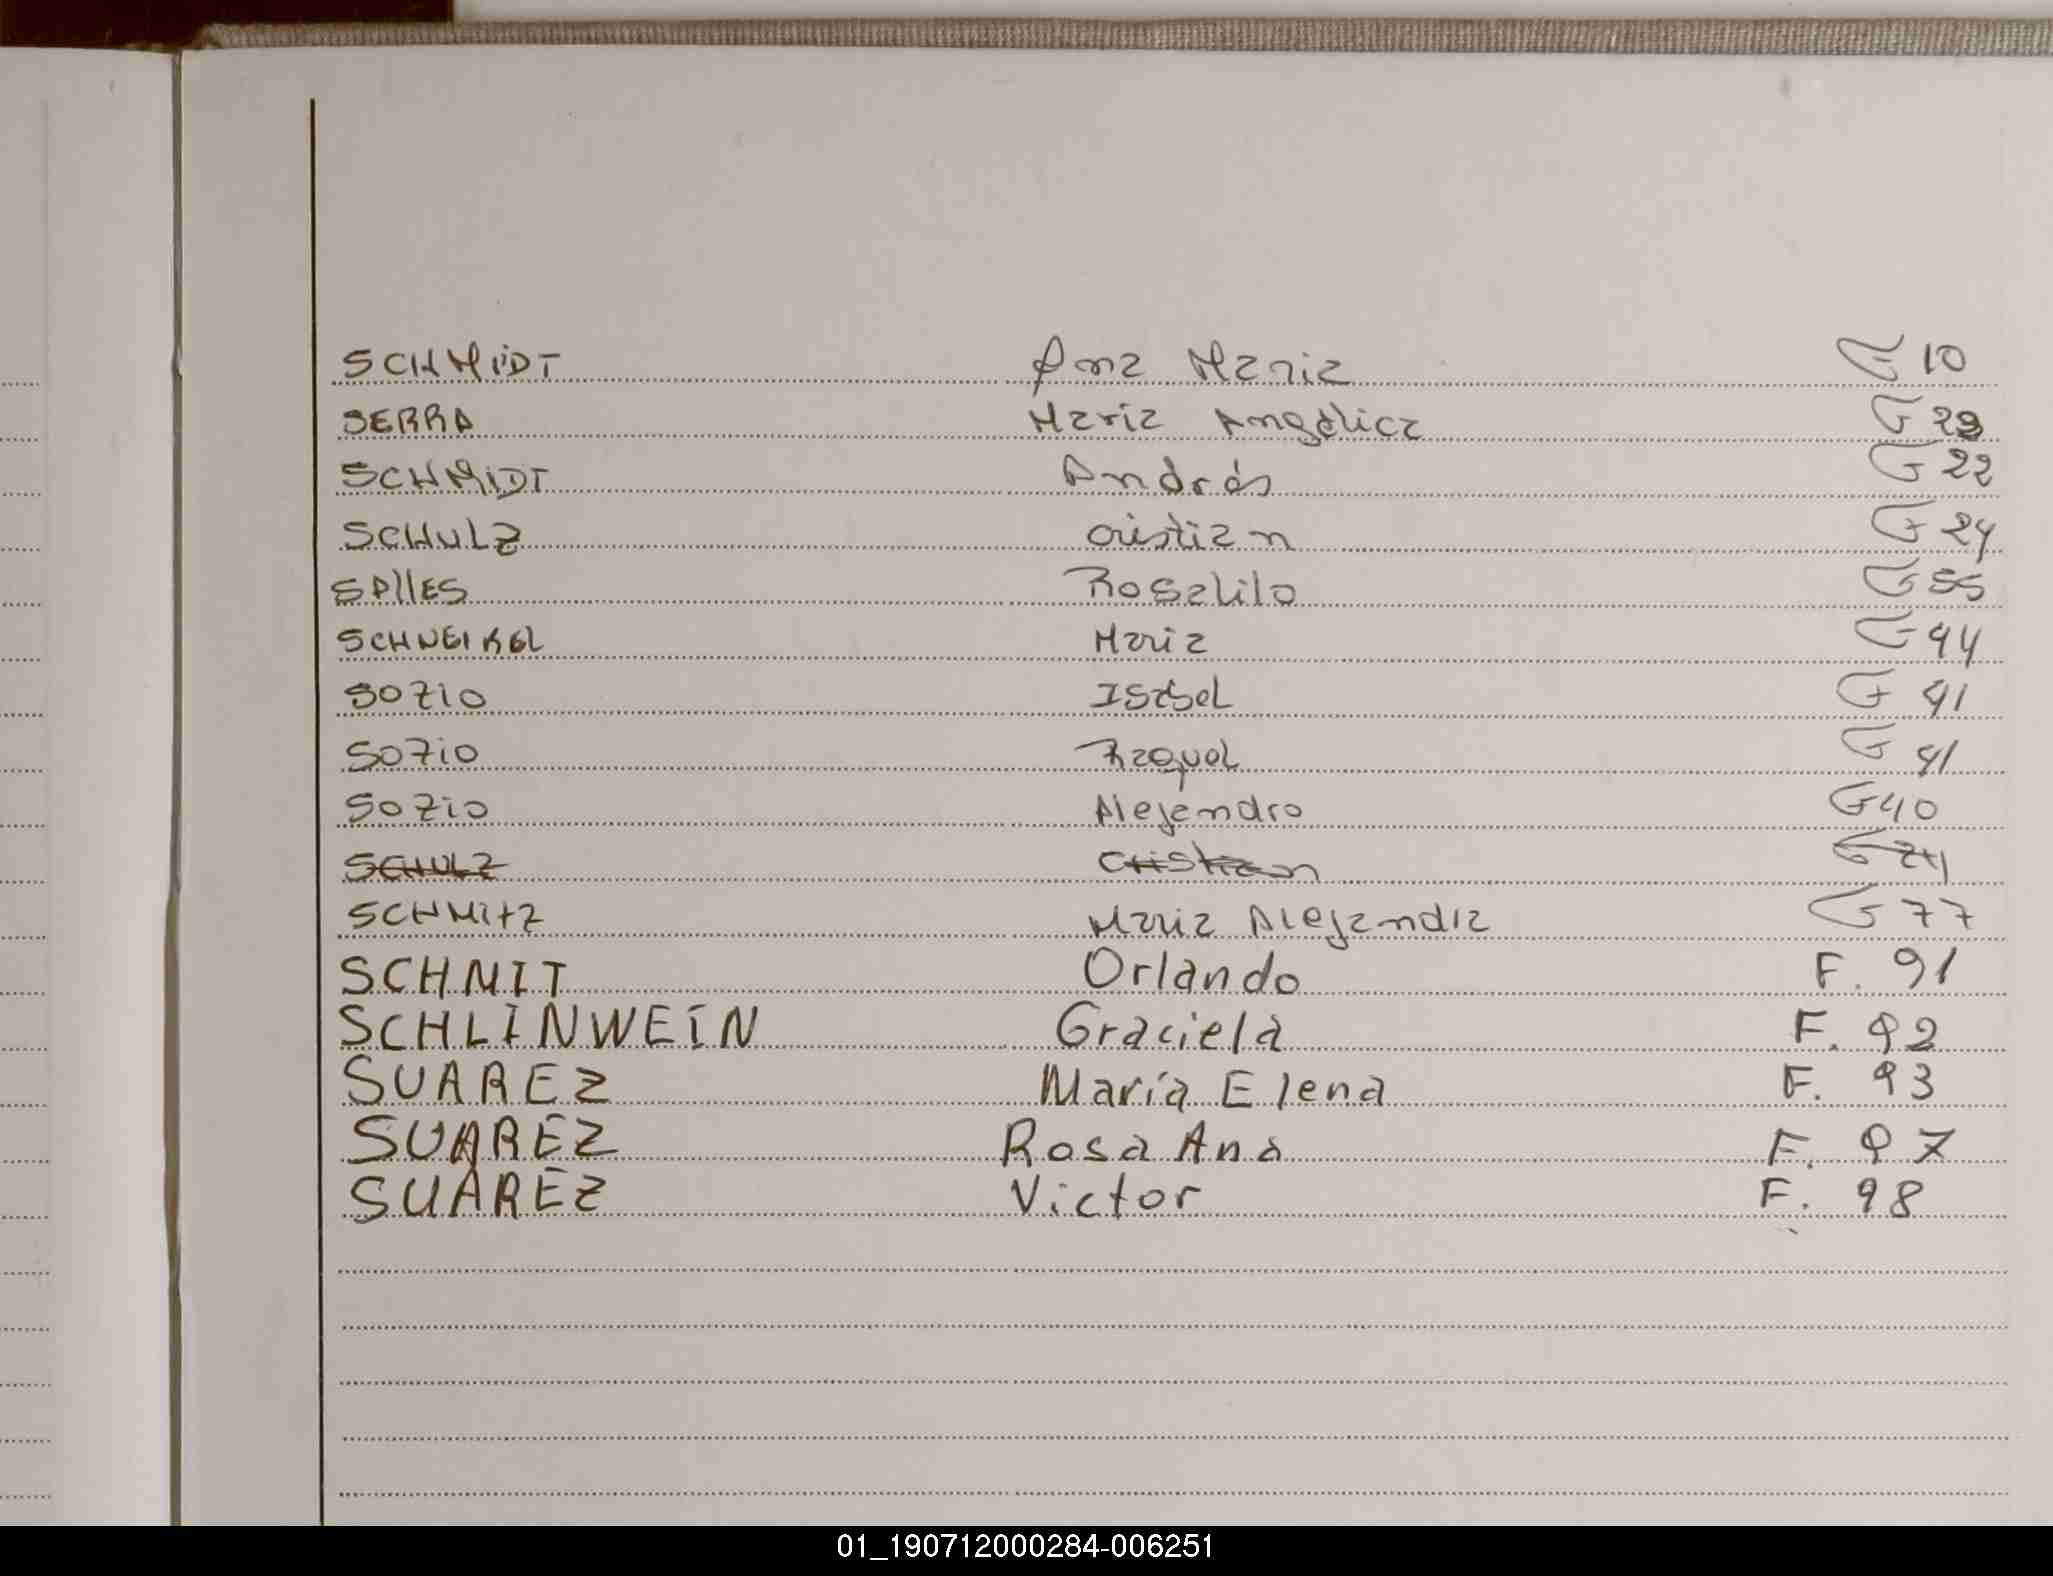 SCHMIDT Ana Maria F 10
SERRA Maria Angélica F 29
SCHMIDT Andrés F 22
SCHULZ Cristian F 24
SALLES Rosalila F 55
SCHNEIKEL Maria F 44
SOZIO Isabel F 41
SOZIO Raquel F 41
SOZIO Alejandro F 40
SCHULZ Cristian F 24
SCHMITZ Maria Alejandra F 77
SCHMIT Orlando F. 91
SCHLINWEIN Graciela F. 92
SUAREZ María Elena F. 93
SUAREZ Rosa Ana F. 97
SUAREZ Victor F. 98
01_190712000284-006251